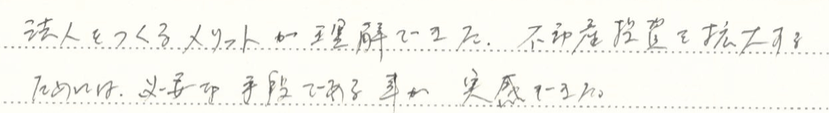 法人をつくるメリットが理解できた。不動産投資を拡大する
ためには、必要な手段である事が実感できた。